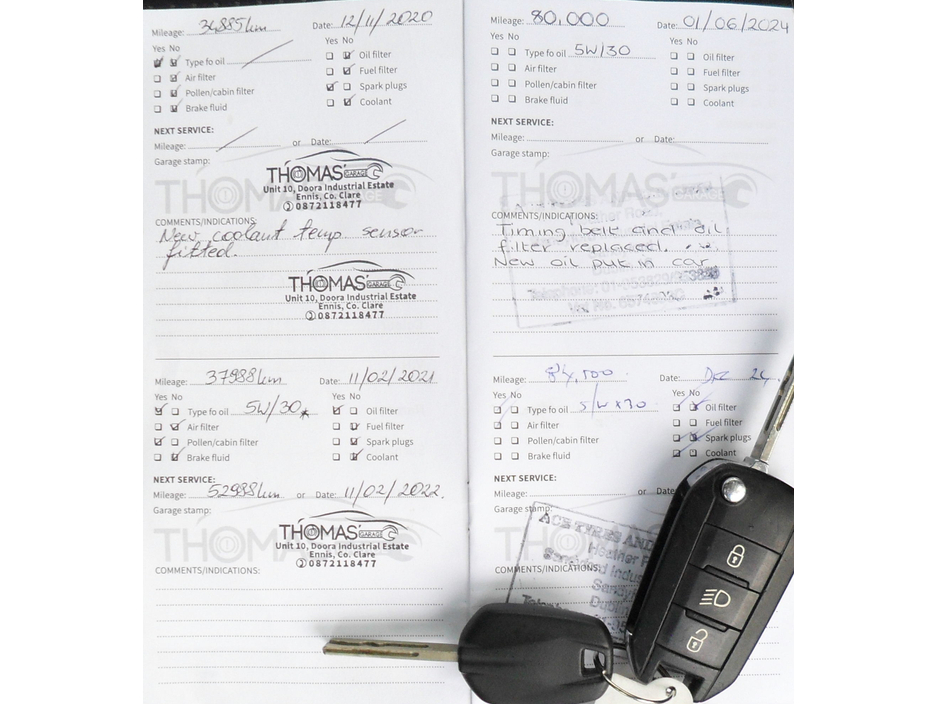 Mileage: 34885km Date: 12/11/2020
Yes No Yes No
Type fo oil Oil filter
Air filter Fuel filter
Pollen/cabin filter Spark plugs
Brake fluid Coolant
NEXT SERVICE:
Mileage: or Date:
Garage stamp:
THOMAS' GARAGE
Unit 10, Doora Industrial Estate
Ennis, Co. Clare
0872118477
COMMENTS/INDICATIONS:
New coolant temp. sensor
fitted.
THOMAS' GARAGE
Unit 10, Doora Industrial Estate
Ennis, Co. Clare
0872118477
Mileage: 37988km Date: 11/02/2021
Yes No Yes No
Type fo oil 5W/30 Oil filter
Air filter Fuel filter
Pollen/cabin filter Spark plugs
Brake fluid Coolant
NEXT SERVICE:
Mileage: 52988km or Date: 11/02/2022.
Garage stamp:
THOMAS' GARAGE
Unit 10, Doora Industrial Estate
Ennis, Co. Clare
0872118477
COMMENTS/INDICATIONS:
Mileage: 80,000 Date: 01/06/2024
Yes No Yes No
Type fo oil 5W/30 Oil filter
Air filter Fuel filter
Pollen/cabin filter Spark plugs
Brake fluid Coolant
NEXT SERVICE:
Mileage: or Date:
Garage stamp:
THOMAS' GARAGE
COMMENTS/INDICATIONS:
Timing belt and oil
filter replaced.
New oil put in car
Telephone: 01-
Mileage: Date: Dec 24
Yes No Yes No
Type fo oil Oil filter
Air filter Fuel filter
Pollen/cabin filter Spark plugs
Brake fluid Coolant
NEXT SERVICE:
Mileage: or Date:
Garage stamp:
ACE TYRES AND
Heather
COMMENTS/INDICATIONS: